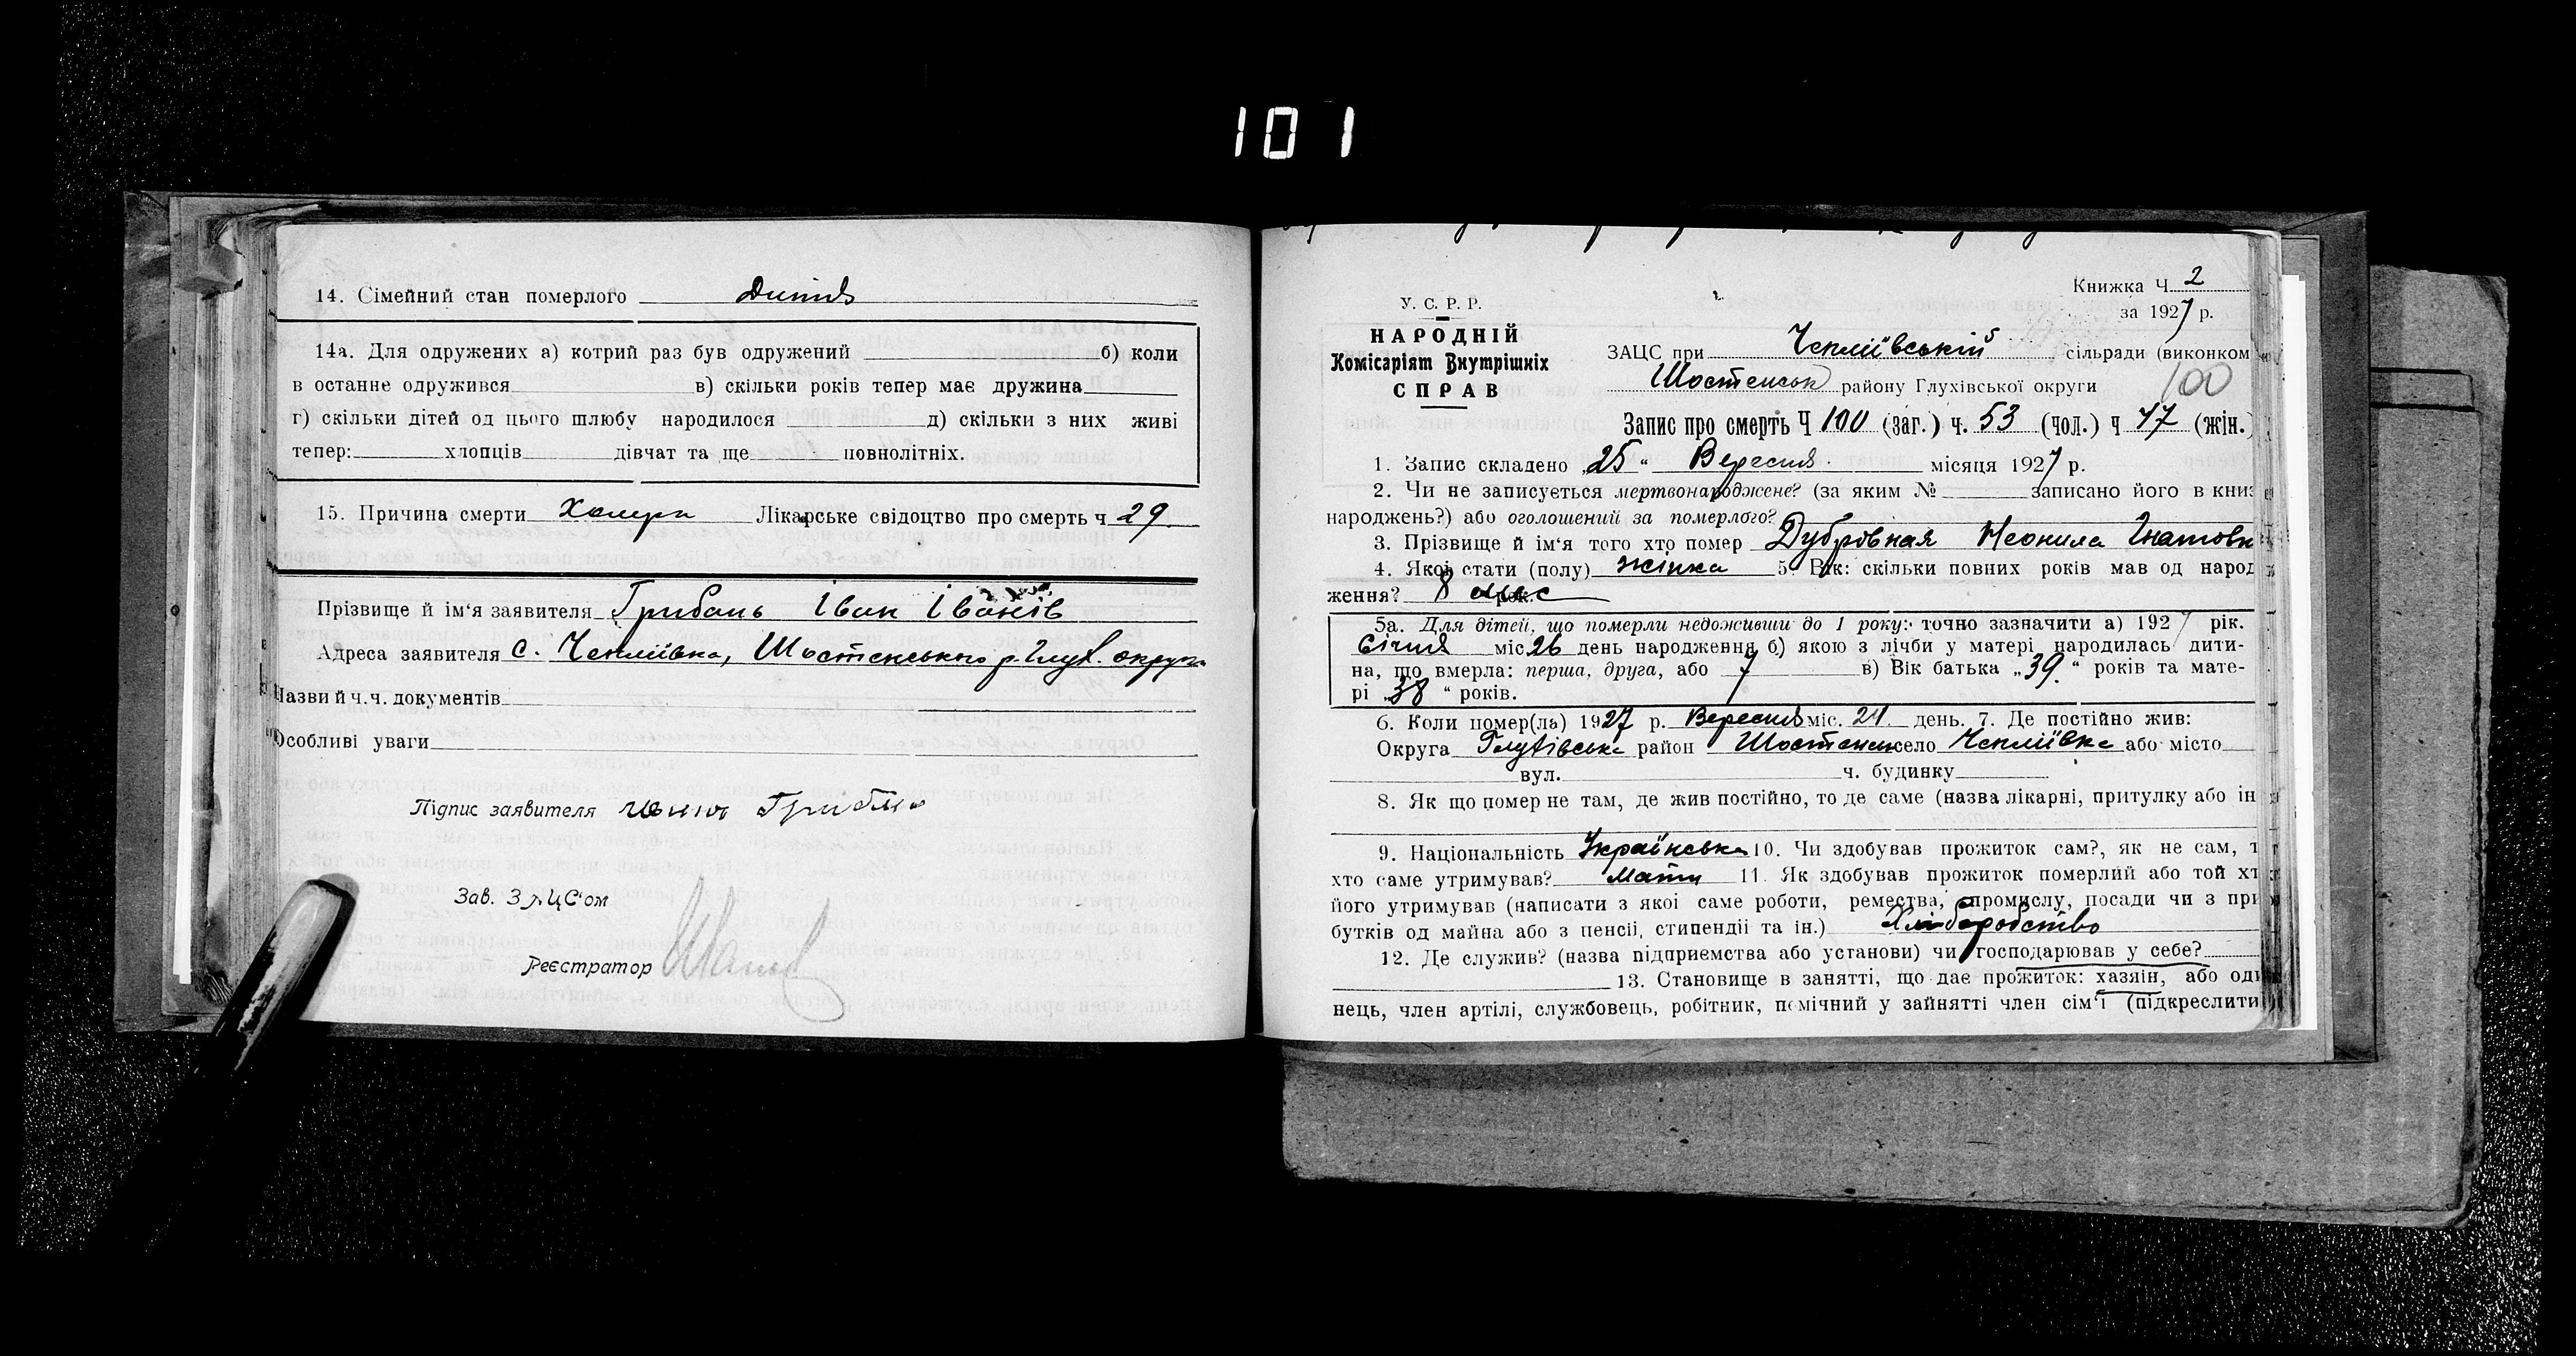 101
14. Сімейний стан померлого Дитя
14а. Для одружених а) котрий раз був одружений б) коли
в останне одружився в) скільки років тепер має дружина
г) скільки дітей од цього шлюбу народилося д) скільки з них живі
тепер: хлопців дівчат та ще повнолітніх.
15. Причина смерти Холера Лікарське свідоцтво про смерть ч 29
Прізвище й ім'я заявителя Грибань Іван Іванів
Адреса заявителя с. Чепліївка, Шостенського р. Глух. округи
Назви й ч.ч. документів
Особливі уваги
Підпис заявителя
Зав. ЗАЦС'ом
Реєстратор
Книжка Ч. 2
за 1927 р.
У. С. Р. Р.
НАРОДНІЙ
Комісаріят Внутрішніх
СПРАВ
ЗАЦС при Чепліївській сільради (виконком
Шостенськ району Глухівської округи
100
Запис про смерть Ч 100 (заг.) ч. 53 (чол.) ч 47 (жін.)
1. Запис складено „25“ Вересня місяця 1927 р.
2. Чи не записується мертвонароджене? (за яким № записано його в книз
народжень?) або оголошений за померлого?
3. Прізвище й ім'я того хто помер Дубровная Неонила Гнатовн
4. Якоі стати (полу) жінка 5. Вік: скільки повних років мав од народ
ження? 8 мес рок.
5а. Для дітей, що померли недоживши до 1 року: точно зазначити а) 1927 рік.
Січня міс 26 день народження б) якою з лічби у матері народилась дити-
на, що вмерла: перша, друга, або 7 в) Вік батька „39“ років та мате-
рі „38“ років.
6. Коли помер(ла) 1927 р. Вересня міс. 24 день. 7. Де постійно жив:
Округа Глухівська район Шостенськ село Чепліївка або місто
вул. ч. будинку
8. Як що помер не там, де жив постійно, то де саме (назва лікарні, притулку або ін
9. Національність Українська 10. Чи здобував прожиток сам?, як не сам, т
хто саме утримував? Мати 11. Як здобував прожиток померлий або той хт
його утримував (написати з якоі саме роботи, ремества, промислу, посади чи з при
бутків од майна або з пенсіі, стипендіі та ін.) Хліборобство
12. Де служив? (назва підприємства або установи) чи господарював у себе?
13. Становище в занятті, що дає прожиток: хазяін, або оди
нець, член артілі, службовець, робітник, помічний у зайнятті член сім'ї (підкреслити